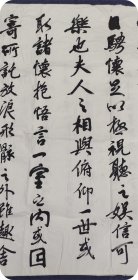 目騁懷足以極視聽之娛信可
樂也夫人之相與俯仰一世或
取諸懷抱悟言一室之內或因
寄所託放浪形骸之外雖趣舍